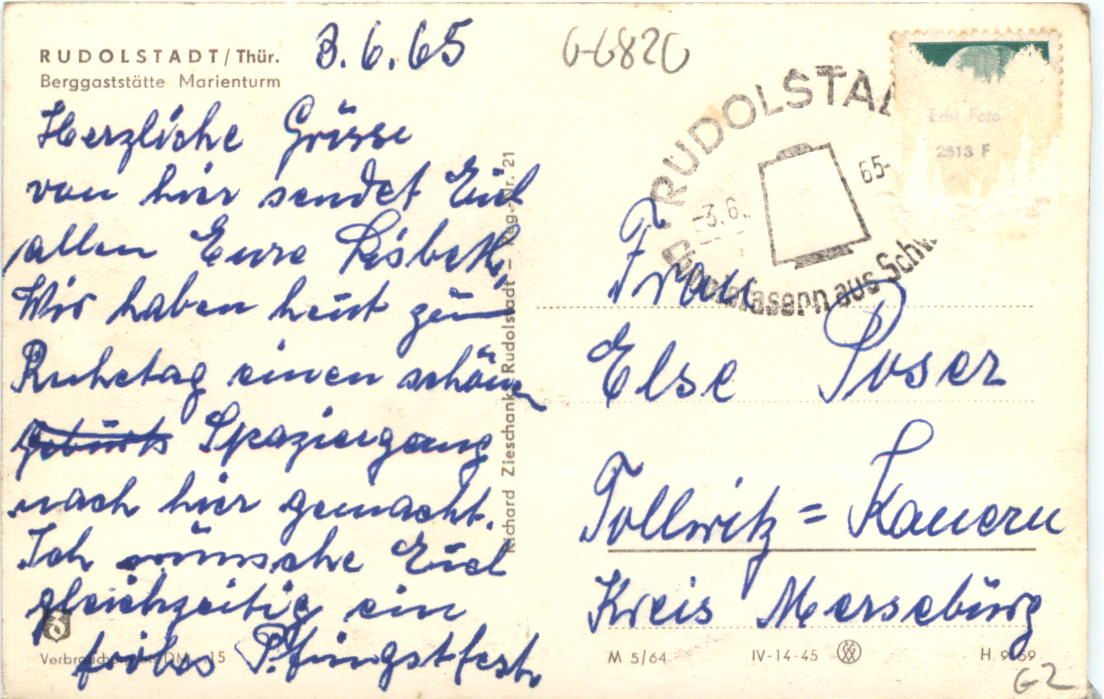 RUDOLSTADT/Thür.
Berggaststätte Marienturm
3.6.65
Herzliche Grüsse
von hier sendet Euch
allen Eure Lisbeth,
Wir haben heut zum
Ruhetag einen schönen
Geburts Spaziergang
nach hier gemacht.
Ich wünsche Euch
gleichzeitig ein
frohes Pfingstfest.
Verbraucherpreis DM -,15
Richard Zieschank, Rudolstadt – Reg.-Nr. 21
G-6820
RUDOLSTA
-3.6.
65-
aus Schw
Echt Foto
2513 F
Frau
Else Poser
Tollwitz = Kauern
Kreis Merseburg
M 5/64
IV-14-45
H 9/59
G2